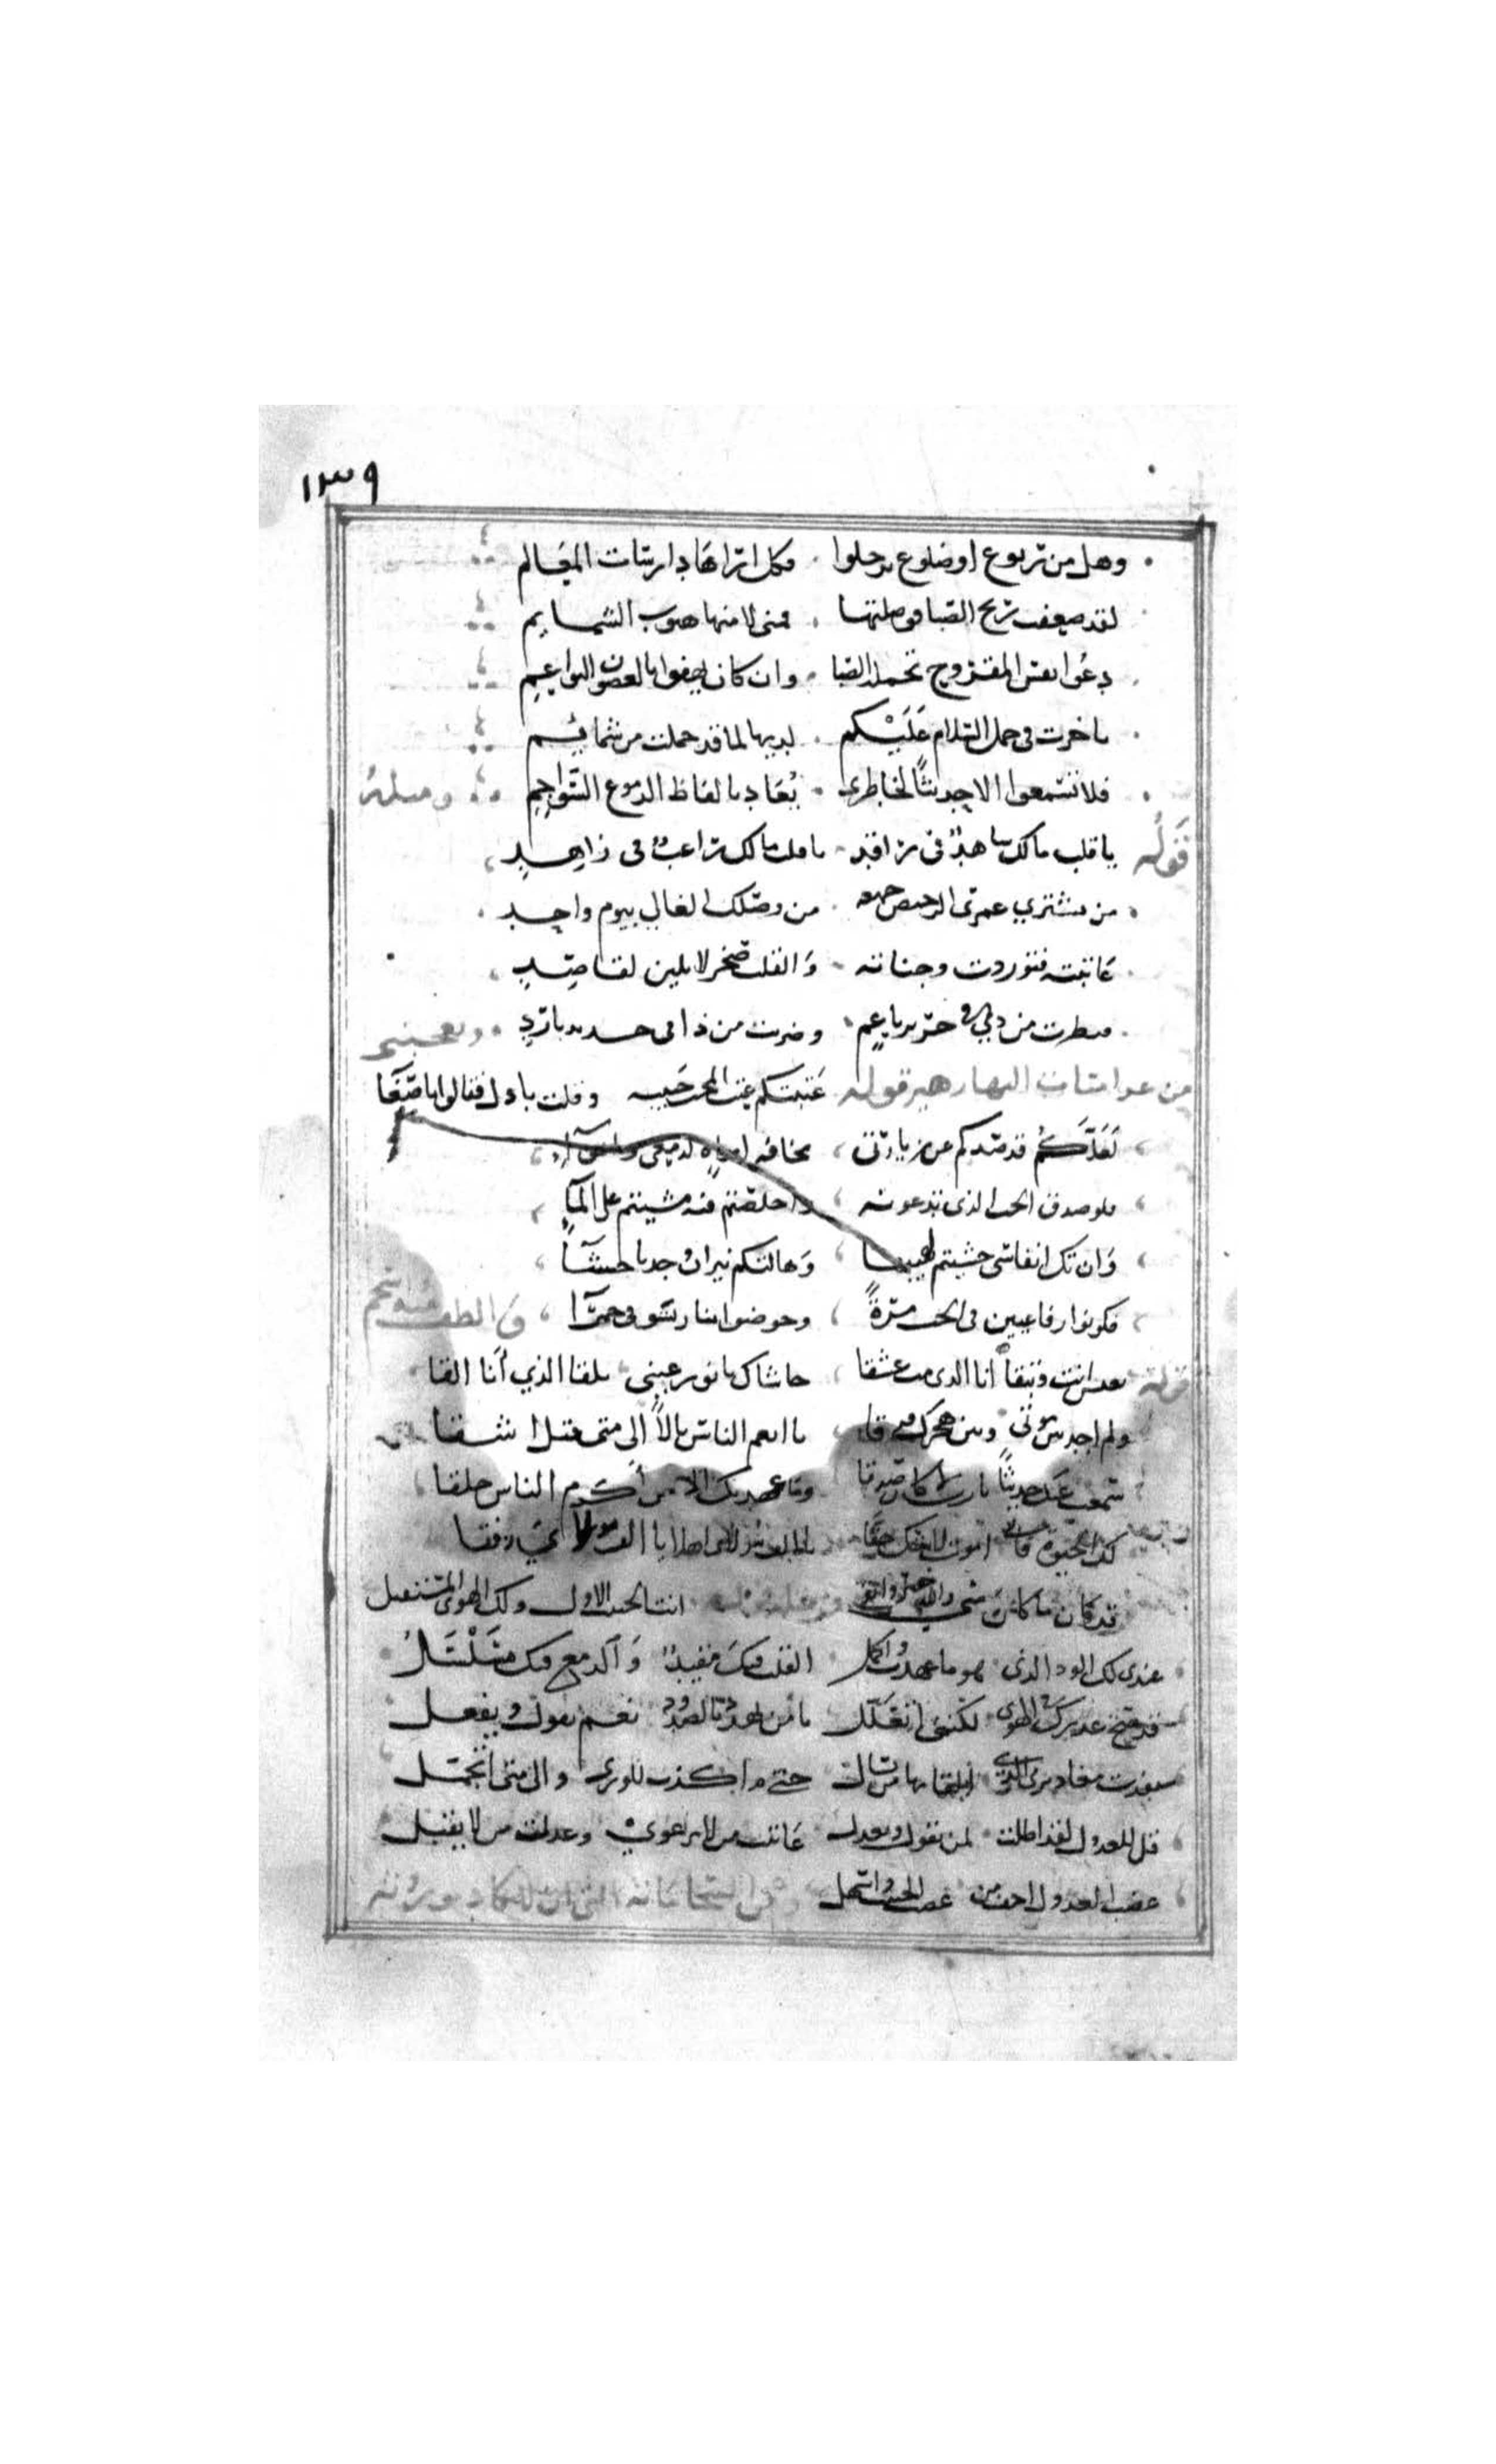 ١٣٩
وهل من ربوع او ضلوع ترحلوا فكل اراها دارسات المعالم
لقد ضعفت ريح الصبا فوصلتها فمنى لا منها هبوب الشمايم
دعوا نفس المقروح تحمله الصبا وان كان يهفوا بالغصون النواعم
تاخرت في حمل السلام عليكم لديها لما قد حملت من شمايم
فلا تسمعوا الا حديثا لخاطري يعاد بالفاظ الدموع السواجم ومثله
قوله يا قلب مالك شاهد في راقد يا قلب مالك راغب في زاهد
من يشتري عمري الرخيص جميعه من وصلك الغالي بيوم واحد
عاتبته فتوردت وجناته والقلب صخر لا يلين لقاصد
فنظرت من ذي في حرير ناعم وضربت من ذا في حديد بارد ويعجبني
من غراميات البها زهير قوله عتبتكم عتب المحب حبيبه وقلت باذلال فقالوا باصغا
لعلكم قد صدكم عن زيارتي مخافة امواه لدمعي
فلو صدق الحب الذي تدعونه واخلصتم فيه مشيتم على الما
وان تك انفاسي خشيتم لهيبها وهالتكم نيران وجد باحشا
فكونوا رفاعيين في الحب مرة وخوضوا بنا رسوفى حمرا والطف
قوله تعيش انت وتبقا انا الذي مت عشقا حاشاك يا نور عيني تلقا الذي انا القا
ولم اجد بين موتي وبين هجرك فرقا يا انعم الناس بالا الى متى فيك اشقا
سمعت عنك حديثا يا رب لا كان صدقا وما عهدتك الا من اكرم الناس خلقا
لك الحيوة فاني اموت لا شك حقا يا الف مولاي رفقا
قد كان ما كان مني والله خير وابقى انت الحبيب الاول ولك الهوى المستقبل
عندي لك الود الذي هو ما عهدت واكمل القلب فيك مقيد والدمع فيك مسلسل
قد صح عذرك في الهوى لكنني اتعلل يا من يهدد بالصدود نعم تقول وتفعل
نفدت معاذيري التي القا بها من يسال حتى م اكذب للورى والى متى اتجمل
قل للعذول لقد اطلت لمن تقول وتعذل عاتبت من لا يرعوي وعذلت من لا يقبل
غضب العذول اخف من غضب الحبيب واسهل